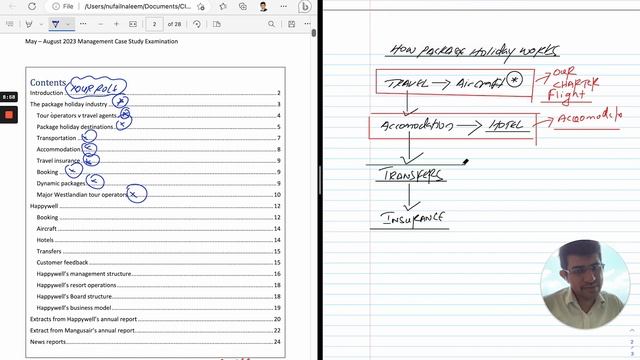 File
/Users/nufailnaleem/Documents/Cl...
2
of 28
May – August 2023 Management Case Study Examination
Contents
YOUR ROLE
Introduction 2
The package holiday industry 3
Tour operators v travel agents 4
Package holiday destinations 5
Transportation 7
Accommodation 8
Travel insurance 8
Booking 9
Dynamic packages 9
Major Westlandian tour operators 10
Happywell 12
Booking 12
Aircraft 14
Hotels 14
Transfers 15
Customer feedback 15
Happywell's management structure 16
Happywell's resort operations 18
Happywell's Board structure 18
Happywell's business model 19
Extracts from Happywell's annual report 20
Extract from Mangusair's annual report 22
News reports 24
8:58
HOW PACKAGE HOLIDAY WORKS
TRAVEL → Aircraft
OUR CHARTER Flight
Accomodation → HOTEL
Accomodatio
TRANSFERS
INSURANCE